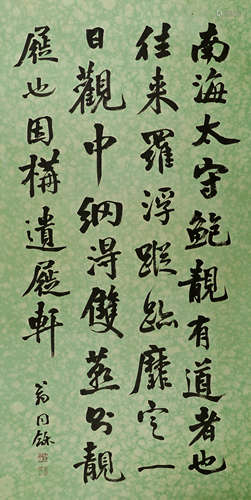 南海太守鮑靚有道者也
往來羅浮蹤跡靡定一
日觀中網得雙燕靚
屣也因構遺屣軒
翁同龢